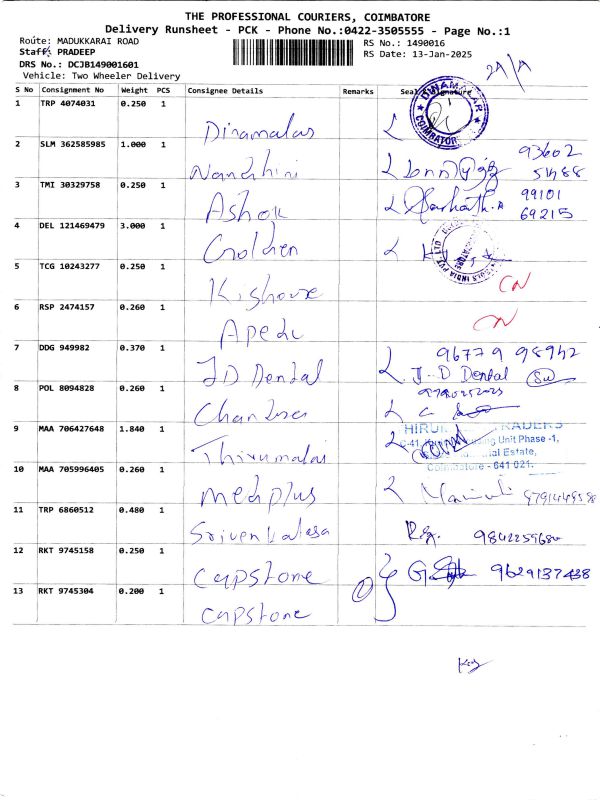 THE PROFESSIONAL COURIERS, COIMBATORE
Delivery Runsheet - PCK - Phone No.:0422-3505555 - Page No.:1
Route: MADUKKARAI ROAD
Staff: PRADEEP
DRS No.: DCJB149001601
Vehicle: Two Wheeler Delivery
RS No.: 1490016
RS Date: 13-Jan-2025
S No Consignment No Weight PCS Consignee Details Remarks Seal Signature
1 TRP 4074031 0.250 1 Dinamalar
COIMBATORE
2 SLM 362585985 1.000 1 Nandhini 93602
3 TMI 30329758 0.250 1 Ashok 99101
69215
4 DEL 121469479 3.000 1 Golden
5 TCG 10243277 0.250 1 Kishore CN
6 RSP 2474157 0.260 1 Apedu CN
7 DDG 949982 0.370 1 JD Dental 96779 98942
J-D Dental
8 POL 8094828 0.260 1
9 MAA 706427648 1.840 1 Thirumalai
TRADERS
Unit Phase -1,
Estate,
Coimbatore - 641 021.
10 MAA 705996405 0.260 1 Medplus
11 TRP 6860512 0.480 1 Srivenkatesa
12 RKT 9745158 0.250 1 Capstone 9629137438
13 RKT 9745304 0.200 1 Capstone